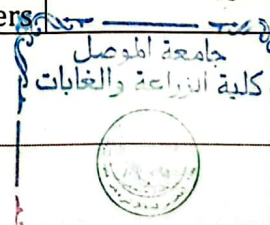 ers
جامعة الموصل
كلية الزراعة والغابات